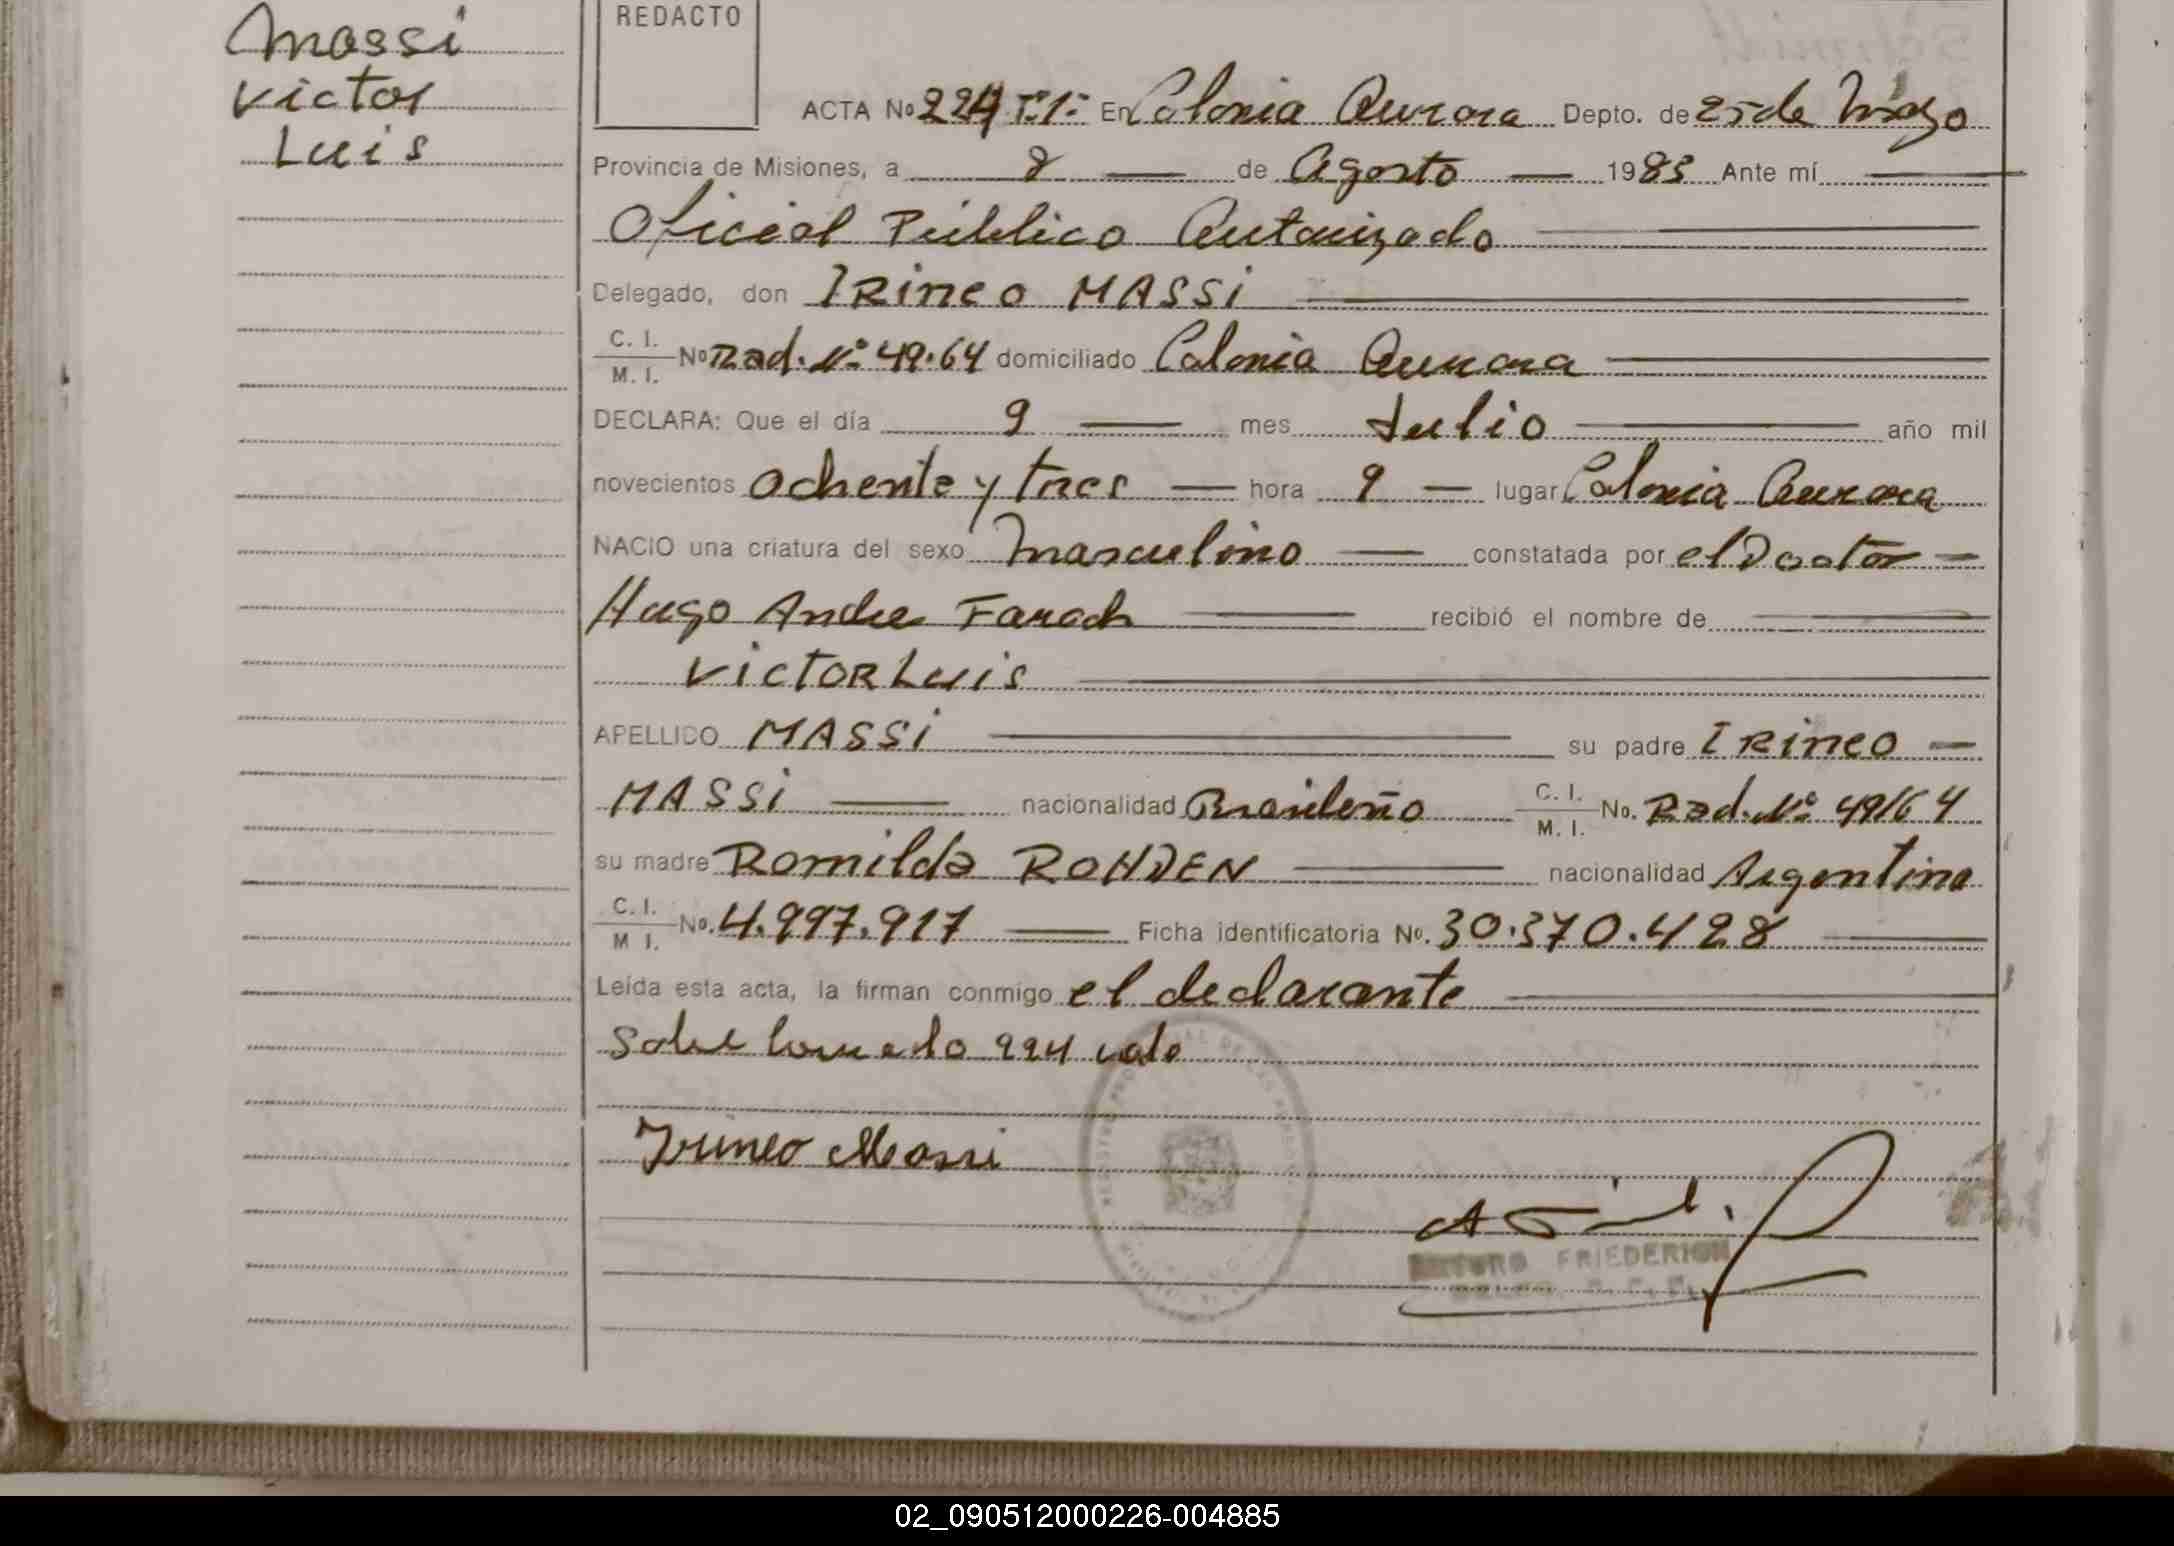 Massi
Victor
Luis
REDACTO
ACTA Nº 224 Tº1º En Colonia Aurora Depto. de 25 de Mayo
Provincia de Misiones, a 8 — de Agosto — 1983 Ante mí —
Oficial Público Autorizado —
Delegado, don IRineo MASSi —
C. I. / M. I. Nº Rad. Nº 49.64 domiciliado Colonia Aurora —
DECLARA: Que el día 9 — mes Julio — año mil
novecientos ochenta y tres — hora 9 — lugar Colonia Aurora
NACIO una criatura del sexo masculino — constatada por el Doctor —
Hugo Andre Farach — recibió el nombre de —
VICTOR Luis —
APELLIDO MASSi — su padre IRineo —
MASSi — nacionalidad Brasileño C. I. / M. I. No. Rad. Nº 49164
su madre Romilda ROHDEN — nacionalidad Argentina
C. I. / M I. No. 4.997.917 — Ficha identificatoria No. 30.370.428 —
Leída esta acta, la firman conmigo el declarante —
Sobre borrado 224 vale
Irineo Massi
ARTURO FRIEDERICH
02_090512000226-004885